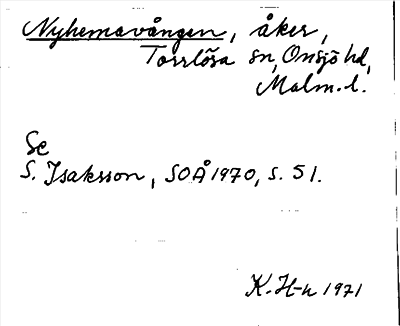 Nyhemavången, åker,
Torrlösa sn, Onsjö hd,
Malm. l.
Se
S. Isaksson, SOÅ 1970, s. 51.
K. H-n 1971